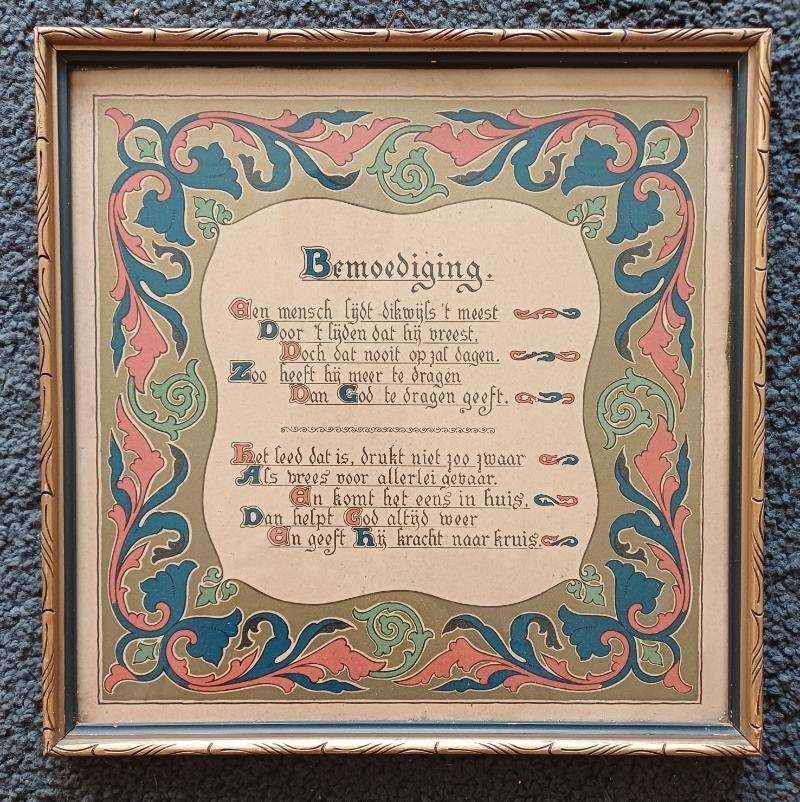 Bemoediging.
Een mensch lijdt dikwijls 't meest
Door 't lijden dat hij vreest,
Doch dat nooit op zal dagen.
Zoo heeft hij meer te dragen
Dan God te dragen geeft.
Het leed dat is, drukt niet zoo zwaar
Als vrees voor allerlei gevaar.
En komt het eens in huis,
Dan helpt God altijd weer
En geeft Hij kracht naar kruis.